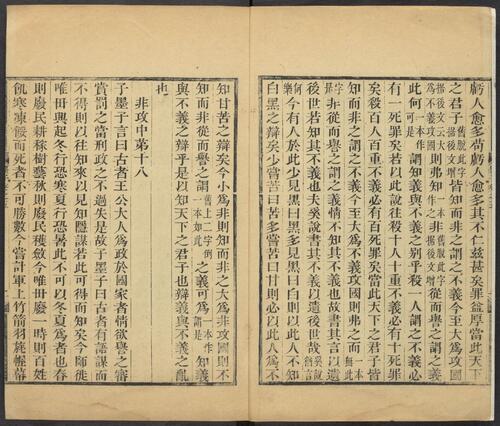 虧人愈多苟虧人愈多其不仁茲甚矣罪益厚當此天下
之君子舊脫此字據後文增皆知而非之謂之不義今至大爲攻國
據後文云大爲不義攻國則弗知一本作之非舊脫此字據後文增從而譽之謂之義
此何一本作可是謂知義與不義之別乎殺一人謂之不義必
有一死罪矣若以此說往殺十人十重不義必有十死罪
矣殺百人百重不義必有百死罪矣當此天下之君子皆
知而非之謂之不義今至大爲不義攻國則弗之而一本無此
字非從而譽之謂之義情不知其不義也故書其言以遺
後世若知其不義也夫奚說書其不義以遺後世哉奚說猶言
何樂今有人於此少見黑曰黑多見黑曰白則以此人不知
白黑之辯矣少嘗苦曰苦多嘗苦曰甘則必以此人爲不
知甘苦之辯矣今小爲非則知而非之大爲非攻國則不
知而非從而譽之謂舊二字倒一本如此之義可爲一本作謂知義
與不義之辯乎是以知天下之君子也辯義與不義之亂
也
非攻中第十八
子墨子言曰古者王公大人爲政於國家者情欲譽之審
賞罰之當刑政之不過失是故子墨子曰古者有語謀而
不得則以往知來以見知隱謀若此可得而知矣今師徒
唯毋興起冬行恐寒夏行恐暑此不可以冬夏爲者也春
則廢民耕稼樹藝秋則廢民穫斂今唯毋廢一時則百姓
飢寒凍餒而死者不可勝數今嘗計軍上竹箭羽旄幄幕